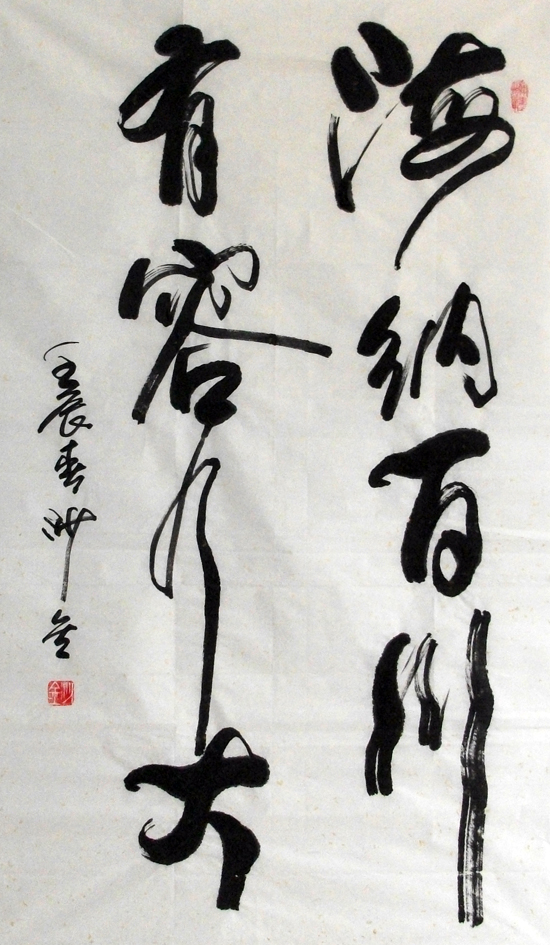 海纳百川
有容乃大
壬辰春